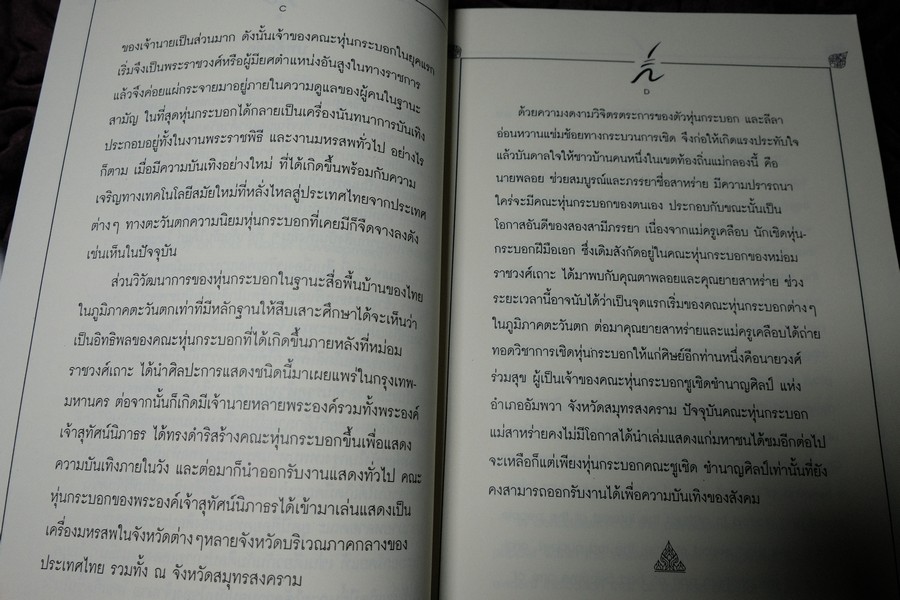 C
ของเจ้านายเป็นส่วนมาก ดังนั้นเจ้าของคณะหุ่นกระบอกในยุคแรก
เริ่มจึงเป็นพระราชวงศ์หรือผู้มียศตำแหน่งอันสูงในทางราชการ
แล้วจึงค่อยแผ่กระจายมาอยู่ภายในความดูแลของผู้คนในฐานะ
สามัญ ในที่สุดหุ่นกระบอกได้กลายเป็นเครื่องนันทนาการบันเทิง
ประกอบอยู่ทั้งในงานพระราชพิธี และงานมหรสพทั่วไป อย่างไร
ก็ตาม เมื่อมีความบันเทิงอย่างใหม่ ที่ได้เกิดขึ้นพร้อมกับความ
เจริญทางเทคโนโลยีสมัยใหม่ที่หลั่งไหลสู่ประเทศไทยจากประเทศ
ต่างๆ ทางตะวันตกความนิยมหุ่นกระบอกที่เคยมีก็จืดจางลงดัง
เช่นเห็นในปัจจุบัน
ส่วนวิวัฒนาการของหุ่นกระบอกในฐานะสื่อพื้นบ้านของไทย
ในภูมิภาคตะวันตกเท่าที่มีหลักฐานให้สืบเสาะศึกษาได้จะเห็นว่า
เป็นอิทธิพลของคณะหุ่นกระบอกที่ได้เกิดขึ้นภายหลังที่หม่อม
ราชวงศ์เถาะ ได้นำศิลปะการแสดงชนิดนี้มาเผยแพร่ในกรุงเทพ-
มหานคร ต่อจากนั้นก็เกิดมีเจ้านายหลายพระองค์รวมทั้งพระองค์
เจ้าสุทัศน์นิภาธร ได้ทรงดำริสร้างคณะหุ่นกระบอกขึ้นเพื่อแสดง
ความบันเทิงภายในวัง และต่อมาก็นำออกรับงานแสดงทั่วไป คณะ
หุ่นกระบอกของพระองค์เจ้าสุทัศน์นิภาธรได้เข้ามาเล่นแสดงเป็น
เครื่องมหรสพในจังหวัดต่างๆหลายจังหวัดบริเวณภาคกลางของ
ประเทศไทย รวมทั้ง ณ จังหวัดสมุทรสงคราม
D
ด้วยความงดงามวิจิตรตระการของตัวหุ่นกระบอก และลีลา
อ่อนหวานแช่มช้อยทางกระบวนการเชิด จึงก่อให้เกิดแรงประทับใจ
แล้วบันดาลใจให้ชาวบ้านคนหนึ่งในเขตท้องถิ่นแม่กลองนี้ คือ
นายพลอย ช่วยสมบูรณ์และภรรยาชื่อสาหร่าย มีความปรารถนา
ใคร่จะมีคณะหุ่นกระบอกของตนเอง ประกอบกับขณะนั้นเป็น
โอกาสอันดีของสองสามีภรรยา เนื่องจากแม่ครูเคลือบ นักเชิดหุ่น-
กระบอกฝีมือเอก ซึ่งเดิมสังกัดอยู่ในคณะหุ่นกระบอกของหม่อม
ราชวงศ์เถาะ ได้มาพบกับคุณตาพลอยและคุณยายสาหร่าย ช่วง
ระยะเวลานี้อาจนับได้ว่าเป็นจุดแรกเริ่มของคณะหุ่นกระบอกต่างๆ
ในภูมิภาคตะวันตก ต่อมาคุณยายสาหร่ายและแม่ครูเคลือบได้ถ่าย
ทอดวิชาการเชิดหุ่นกระบอกให้แก่ศิษย์อีกท่านหนึ่งคือนายวงศ์
ร่วมสุข ผู้เป็นเจ้าของคณะหุ่นกระบอกชูเชิดชำนาญศิลป์ แห่ง
อำเภออัมพวา จังหวัดสมุทรสงคราม ปัจจุบันคณะหุ่นกระบอก
แม่สาหร่ายคงไม่มีโอกาสได้นำเล่มแสดงแก่มหาชนได้ชมอีกต่อไป
จะเหลือก็แต่เพียงหุ่นกระบอกคณะชูเชิด ชำนาญศิลป์เท่านั้นที่ยัง
คงสามารถออกรับงานได้เพื่อความบันเทิงของสังคม